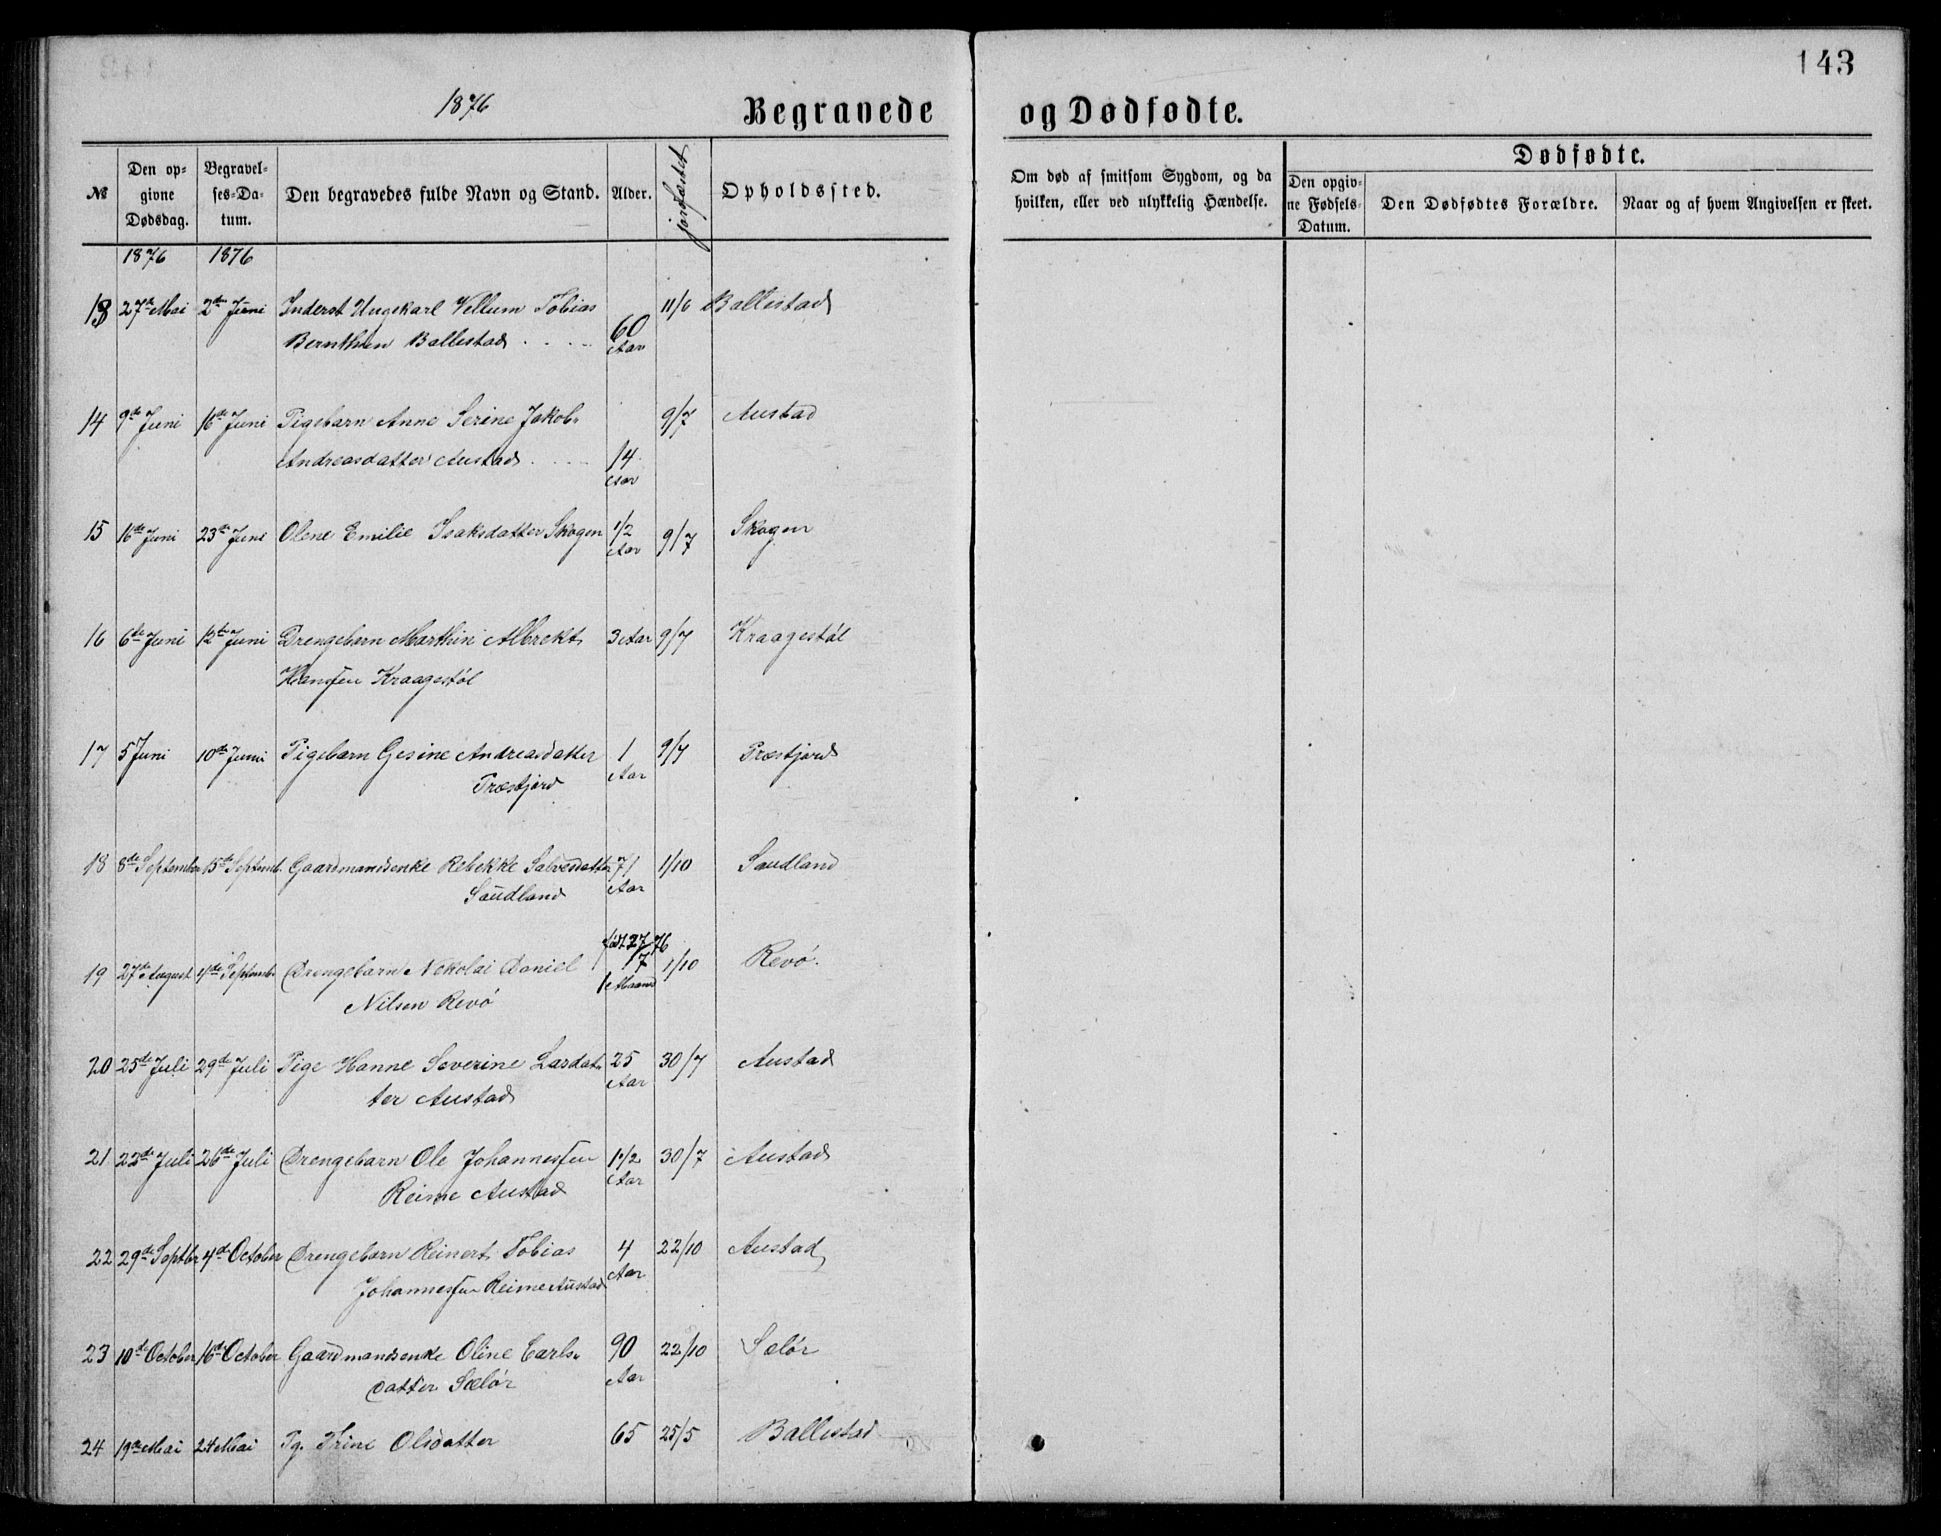 143
1876
Begravede og Dødfødte.
№ | Den opgivne Dødsdag. | Begravelses-Datum. | Den begravedes fulde Navn og Stand. | Alder. | jordfæstet | Opholdssted. | Om død af smitsom Sygdom, og da hvilken, eller ved ulykkelig Hændelse. | Dødfødte. | Den opgivne Fødsels-Datum. | Den Dødfødtes Forældre. | Naar og af hvem Angivelsen er skeet.
1876 1876
13 27de Mai 2den Juni Inderst Ungekarl Vellum Tobias 11/6 Ballestad
Bernthsen Ballestad . . . . 60 Aar
14 9de Juni 16de Juni Pigebarn Anne Serine Jakob- 9/7 Austad
Andreasdatter Austad . . . . 14 Aar
15 16de Juni 23de Juni Olene Emilie Isaksdatter Skogen 1/2 Aar 9/7 Skogen
16 6te Juni 12te Juni Drengebarn Marthin Albrekt 3 Aar 9/7 Kraagestøl
Hansen Kraagestøl
17 5 Juni 10de Juni Pigebarn Gesine Andreasdatter 1 Aar 9/7 Præstjord
Præstjord
18 8de September 15de Septemb. Gaardmandsenke Rebekke Salvesdatter 71 Aar 1/10 Saudland
Saudland
19 27de August 4de Septemb. Drengebarn Nekolai Daniel født 27/7 76 1 Maaned 1/10 Revø.
Nilsen Revø
20 25de Juli 29de Juli Pige Hanne Severine Larsdat- 25 Aar 30/7 Austad
ter Austad
21 22de Juli 26de Juli Drengebarn Ole Johannessen 1 1/2 Aar 30/7 Austad
Reime Austad
22 29de Septbr 4de October Drengebarn Reinert Tobias 4 Aar 22/10 Austad
Johannessen Reime Austad
23 10de October 16de October Gaardmandsenke Oline Carls- 90 Aar 22/10 Sælør
datter Sælør
24 19de Mai 24 Mai Pg. Trine Olsdatter 65 25/5 Ballestad